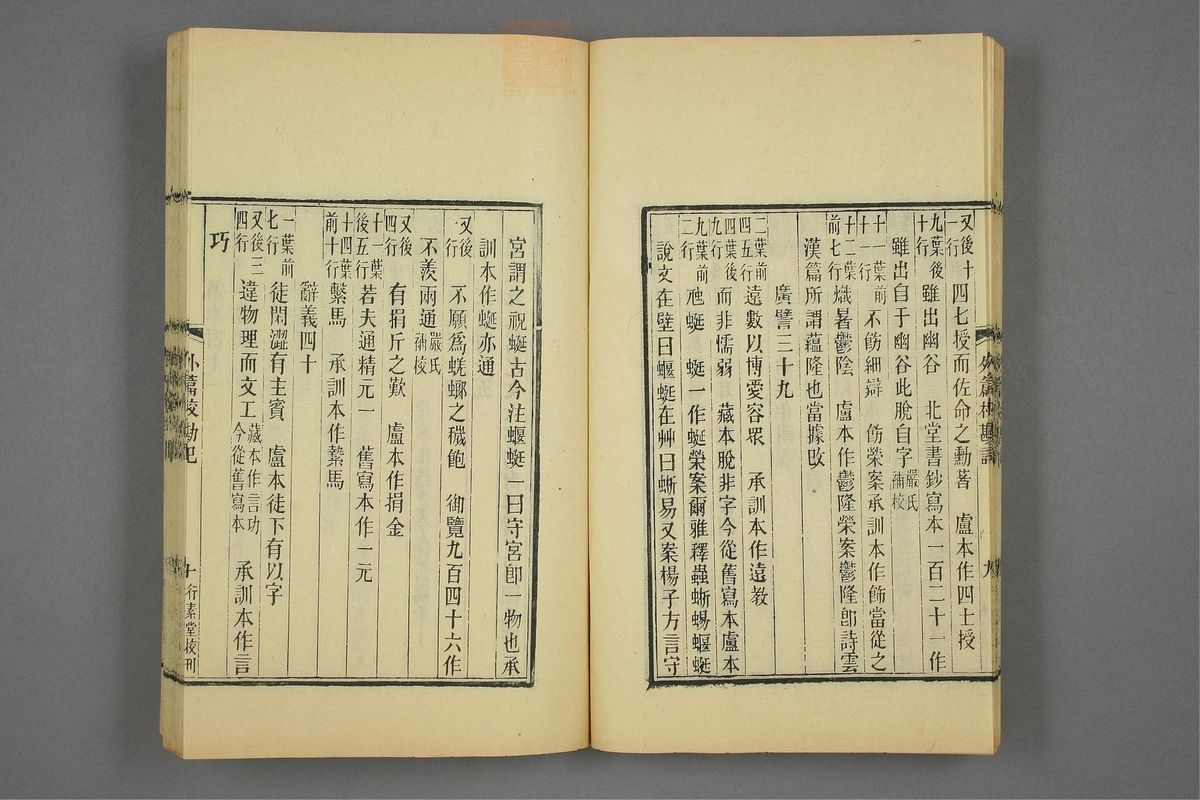 又後十一行 四七授而佐命之勳著 盧本作四士授
九葉後十行 雖出幽谷 北堂書鈔寫本一百二十一作
雖出自于幽谷此脫自字嚴氏補校
十一葉前十一行 不飭細辯 飭榮案承訓本作飾當從之
十二葉前七行 熾暑鬱陰 盧本作鬱隆榮案鬱隆卽詩雲
漢篇所謂蘊隆也當據改
廣譬三十九
二葉前四五行 遠數以博愛容眾 承訓本作遠教
四葉後九行 而非懦弱 藏本脫非字今從舊寫本盧本
九葉前二行 虵蜓 蜓一作蜒榮案爾雅釋蟲蜥蜴蝘蜓
說文在壁曰蝘蜓在艸曰蜥易又案楊子方言守
外篇校勘記 九
宮謂之祝蜓古今注蝘蜓一曰守宮卽一物也承
訓本作蜒亦通
又後行 不願爲蜣蜋之穢飽 御覽九百四十六作
不羨兩通嚴氏補校
又後四行 有捐斤之歎 盧本作捐金
十一葉後五行 若夫通精元一 舊寫本作一元
十四葉前十行 繫馬 承訓本作縶馬
辭義四十
一葉前七行 徒閑澀有主賓 盧本徒下有以字
又後三四行 違物理而文工藏本作言功今從舊寫本 承訓本作言
巧
外篇校勘記 十 行素堂校刊